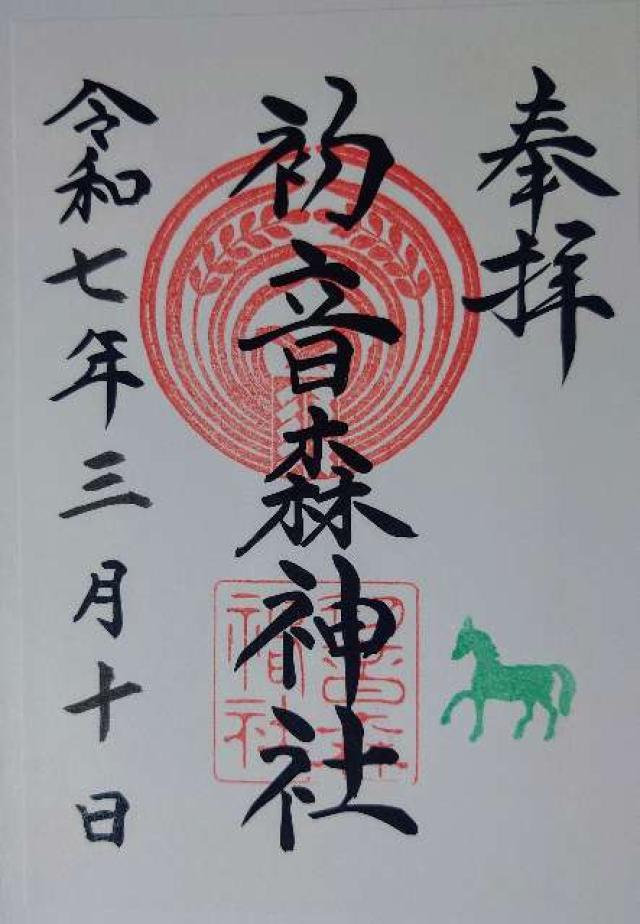 奉拝
初音森神社
令和七年三月十日